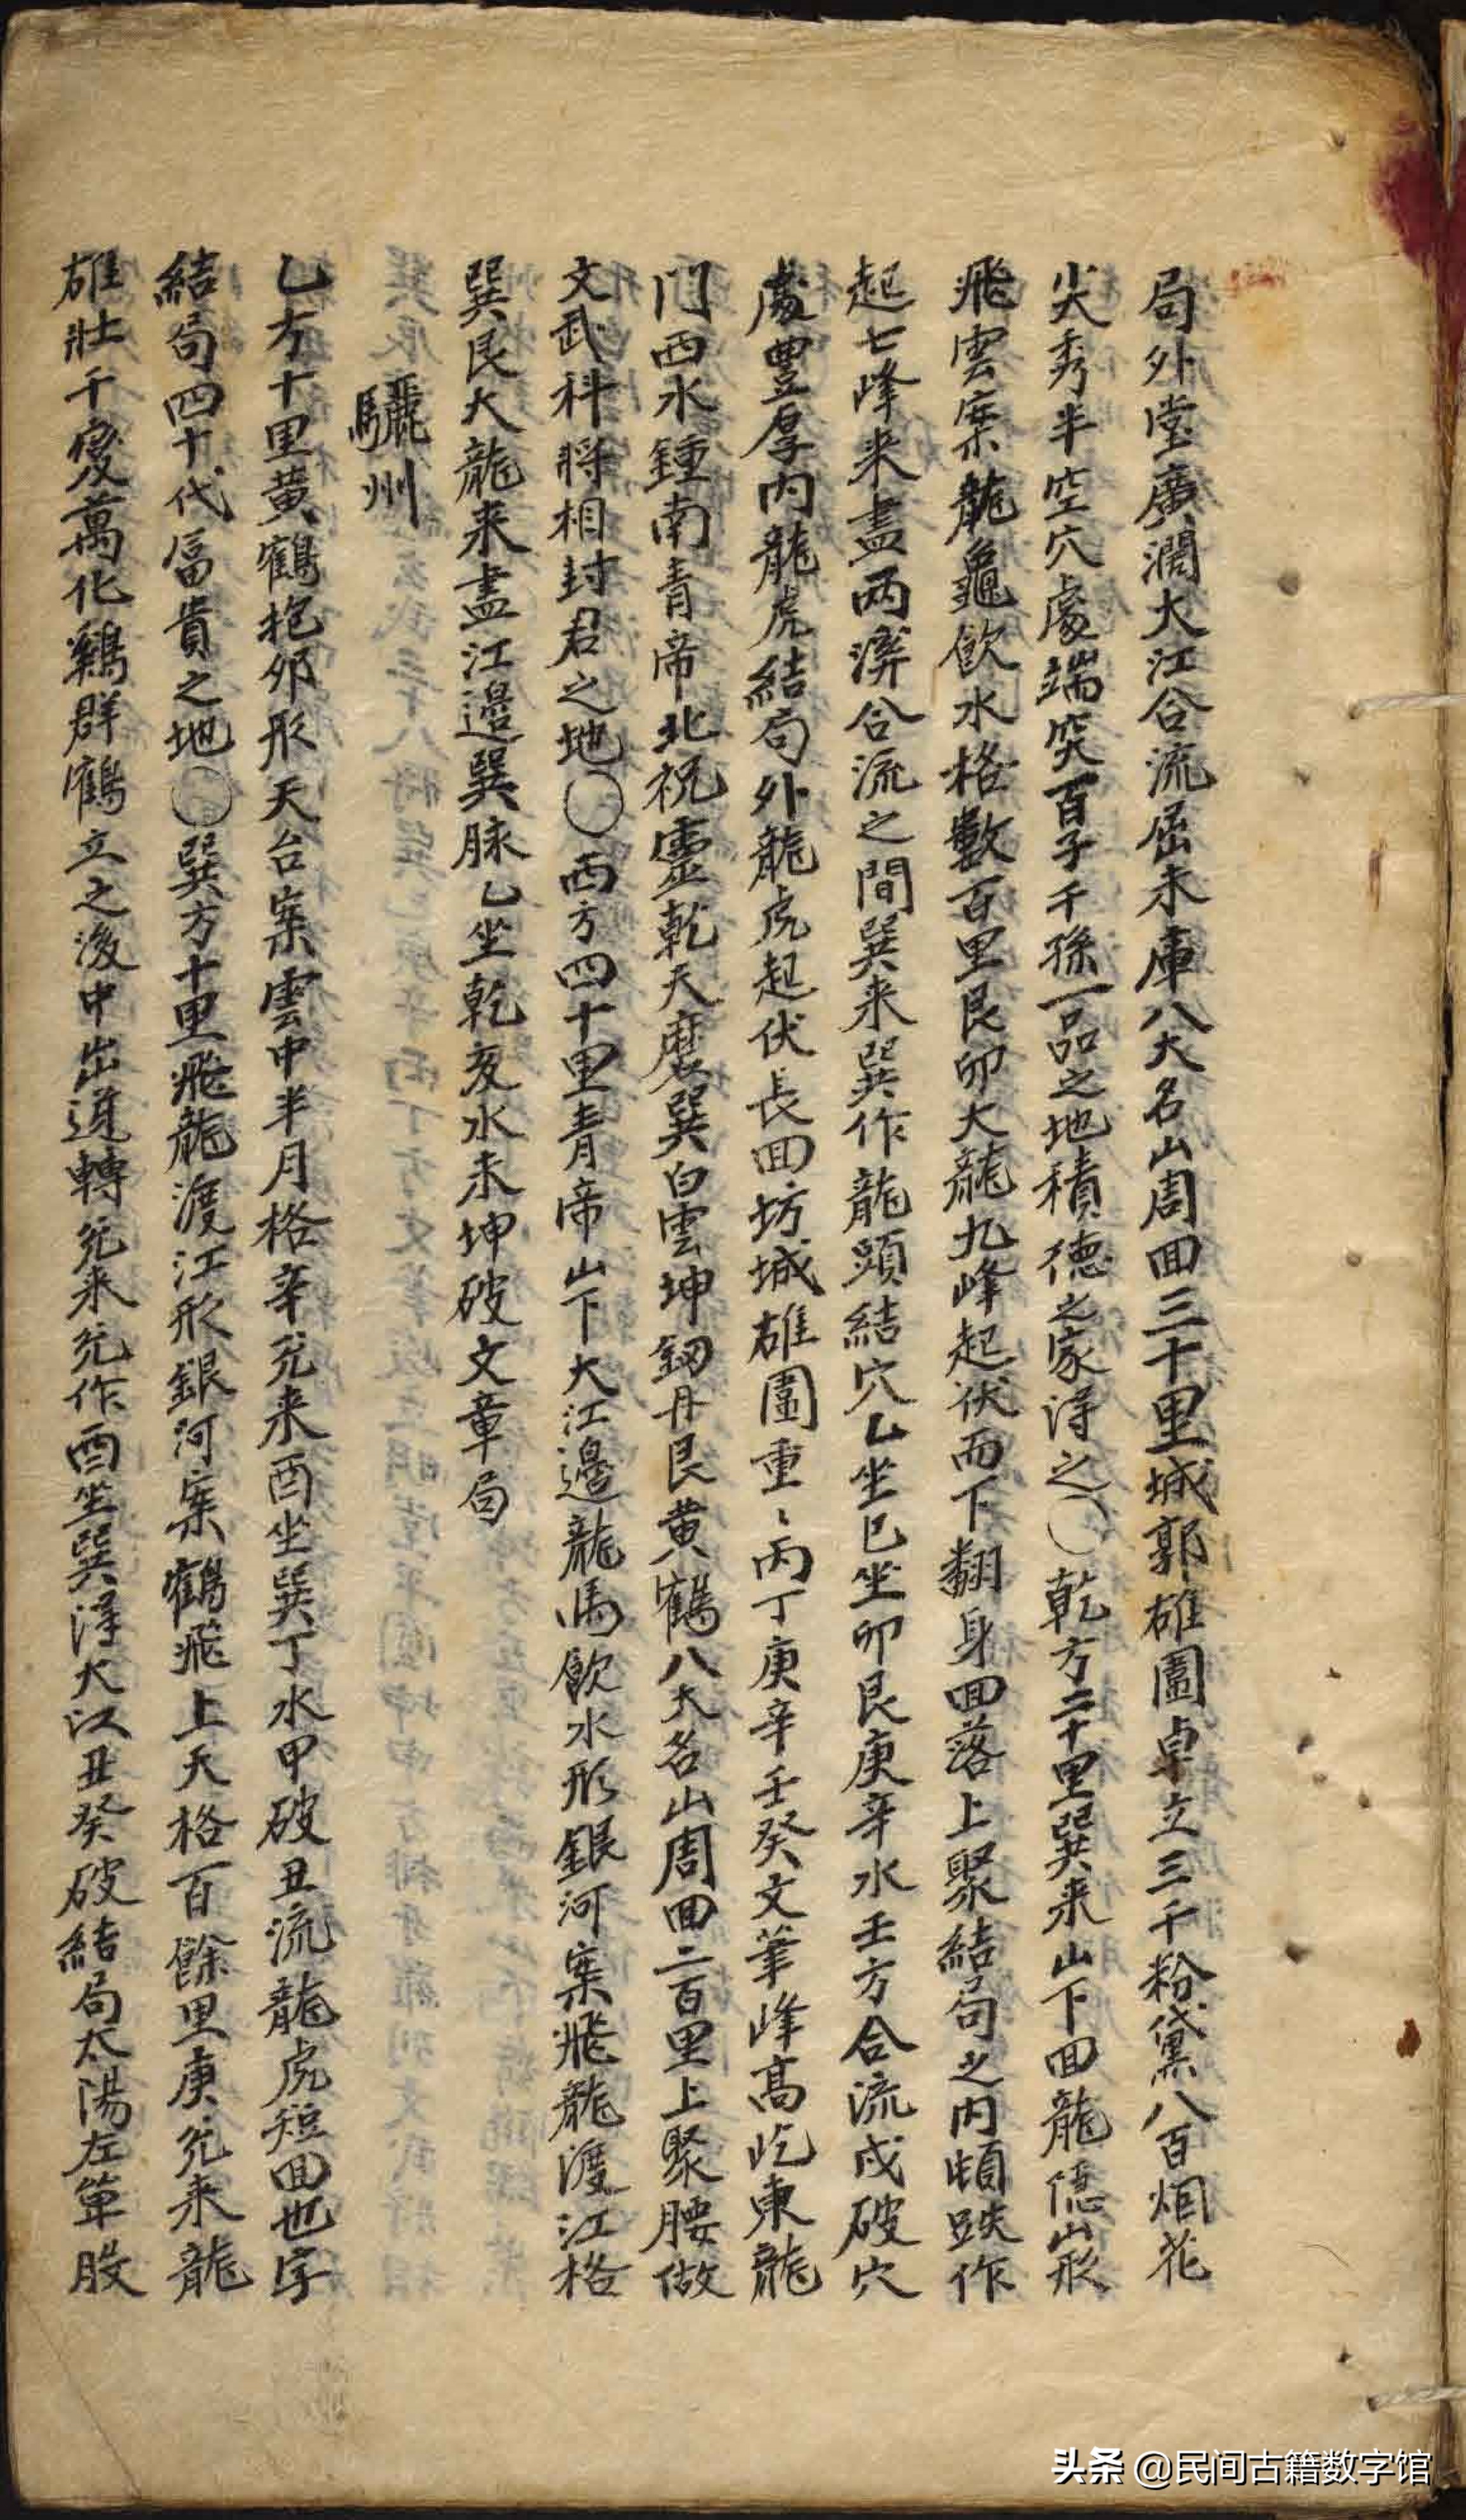 局外堂廣濶大江合流屈未庫八大名山周回三十里城郭雄圍卓立三千粉黛八百烟花
尖秀半空穴處端突百子千孫一品之地積德之家淂之〇乾方二十里巽来山下回龍隱山形
飛雲案龍龜飮水格數百里艮卯大龍九峰起伏而下翻身回落上聚結局之内頓跌作
起七峰来盡两㵎合流之間巽来巽作龍頭結穴乙坐巳坐卯艮庚辛水壬方合流戌破穴
處豊厚内龍虎結局外龍虎起伏長回坊城雄圍重〻丙丁庚辛壬癸文筆峰高屹東龍
门西水鍾南青帝北祝靈乾天麿巽白雲坤釰丹艮黄鶴八大名山周回二百里上聚腰做
文武科將相封君之地〇西方四十里青帝山下大江邊龍馬飮水形銀河案飛龍渡江格
巽艮大龍来盡江邊巽脉乙坐乾亥水未坤破文章局
驪州
乙方十里黄鶴抱卵形天台案雲中半月格辛兊来酉坐巽丁水甲破丑流龍虎短回也字
結局四十代富貴之地〇巽方十里飛龍渡江形銀河案鶴飛上天格百餘里庚兊来龍
雄壯千変萬化鷄群鶴立之後中出逆轉兊来兊作酉坐巽淂大江丑癸破結局太陽左單股
头条 @民间古籍数字馆